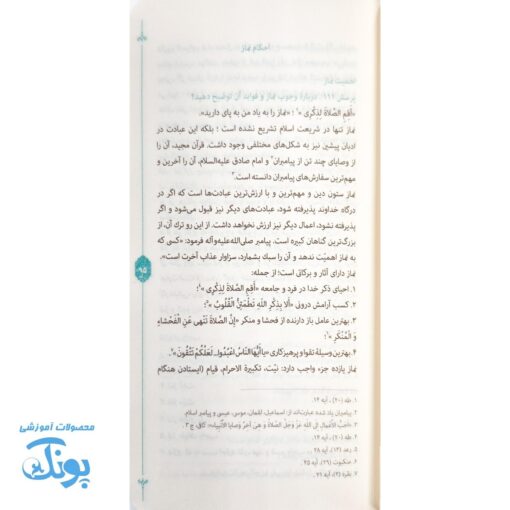 احکام نماز
اهمیت نماز
پرسش ۱۱۱. دربارهٔ وجوب نماز و فواید آن توضیح دهید؟
«أَقِمِ الصَّلاةَ لِذِکْرِی»۱؛ «نماز را به یاد من به پای دارید».
نماز تنها در شریعت اسلام تشریع نشده است؛ بلکه این عبادت در
ادیان پیشین نیز به شکل‌های مختلفی وجود داشت. قرآن مجید، آن را
از وصایای چند تن از پیامبران۲ و امام صادق علیه‌السلام، آن را آخرین و
مهم‌ترین سفارش‌های پیامبران دانسته است.۳
نماز ستون دین و مهم‌ترین و با ارزش‌ترین عبادت‌ها است که اگر در
درگاه خداوند پذیرفته شود، عبادت‌های دیگر نیز قبول می‌شود و اگر
پذیرفته نشود، اعمال دیگر نیز ارزش نخواهد داشت. از این رو ترك آن، از
بزرگ‌ترین گناهان کبیره است. پیامبر صلی‌الله‌علیه‌وآله فرمود: «کسی که
به نماز اهمیّت ندهد و آن را سبك بشمارد، سزاوار عذاب آخرت است».
نماز دارای آثار و برکاتی است؛ از جمله:
۱. احیای ذکر خدا در فرد و جامعه «أَقِمِ الصَّلاةَ لِذِکْرِی»۴؛
۲. کسب آرامش درونی «أَلا بِذِکْرِ اللَّهِ تَطْمَئِنُّ الْقُلُوبُ»۵؛
۳. بهترین عامل باز دارنده از فحشا و منکر «إِنَّ الصَّلاةَ تَنْهی عَنِ الْفَحْشاءِ
وَ الْمُنْکَرِ»۶؛
۴. بهترین وسیلهٔ تقوا و پرهیزکاری «یا أَیُّهَا النَّاسُ اعْبُدُوا... لَعَلَّکُمْ تَتَّقُونَ»۷.
نماز یازده جزء واجب دارد: نیّت، تکبیرة الاحرام، قیام (ایستادن هنگام
۹۵
۱. طه (۲۰)، آیه ۱۴.
۲. پیامبران یاد شده عبارت‌اند از: اسماعیل، لقمان، موسی، عیسی و پیامبر اسلام.
۳. «أَحَبُّ الأَعْمالِ إِلَی اللَّهِ عَزَّ وَ جَلَّ الصَّلاةُ وَ هِیَ آخِرُ وَصایا الأَنْبِیاءِ»؛ کافی، ج ۳.
۴. طه (۲۰)، آیه ۱۴.
۵. رعد (۱۳)، آیه ۲۸.
۶. عنکبوت (۲۹)، آیه ۴۵.
۷. بقره (۲)، آیه ۲۱.
محصولات آموزشی
پونک